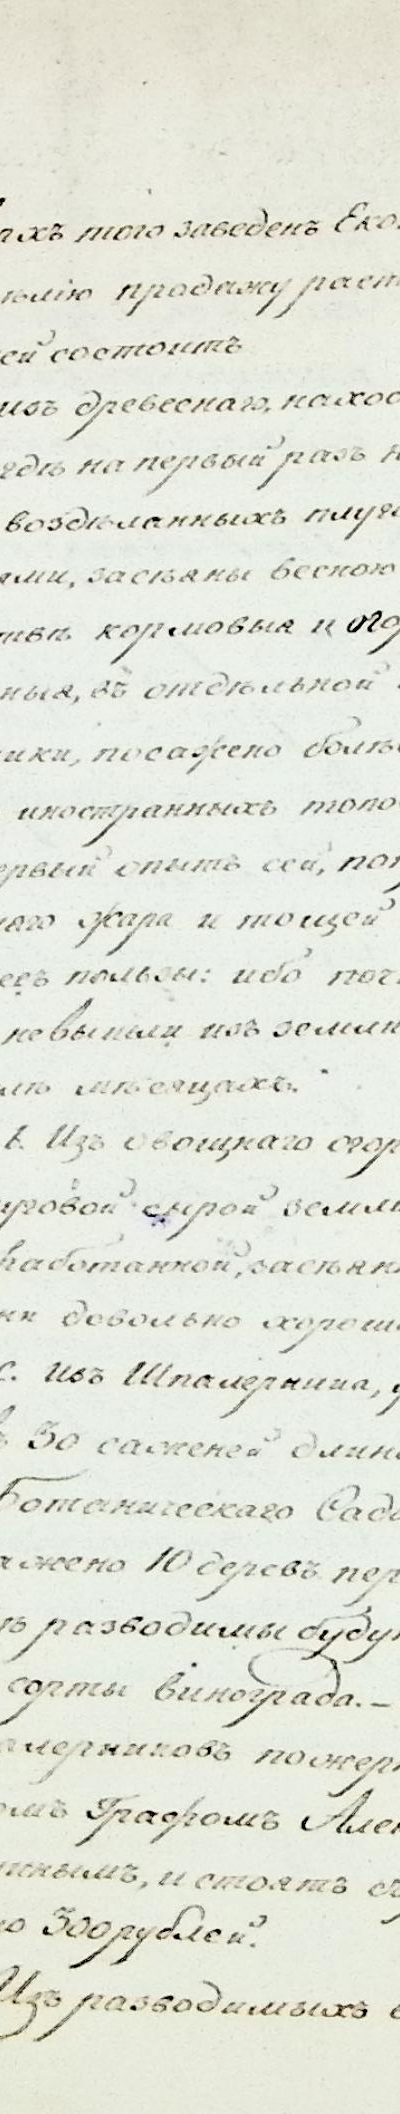 ахъ того заведенъ Еко
нълію продажу раст
сей состоитъ
изъ древеснаго, наход
гдѣ на первый разъ н
воздѣланныхъ плуг
ями, засѣяны весною
твѣ кормовыя и ого
ныя, въ отдѣльной
ики, посажено болѣ
иностранныхъ топо
ервый опытъ сей, поп
наго жара и тощей
еся пользы: ибо поч
невышли изъ земли
мѣ мѣсяцахъ.
b. Изъ овощнаго огор
уговой сырой земли
работанной, засѣян
ни довольно хорош
с. изъ Шпалерника,
въ 50 саженей длин
Ботаническаго Сада
ажено 10 деревъ пер
ть разводимы будут
сорты винограда.—
алерниковъ пожер
омъ Графомъ Алек
инымъ, и стоятъ
о 300 рублей.
Изъ разводимыхъ в